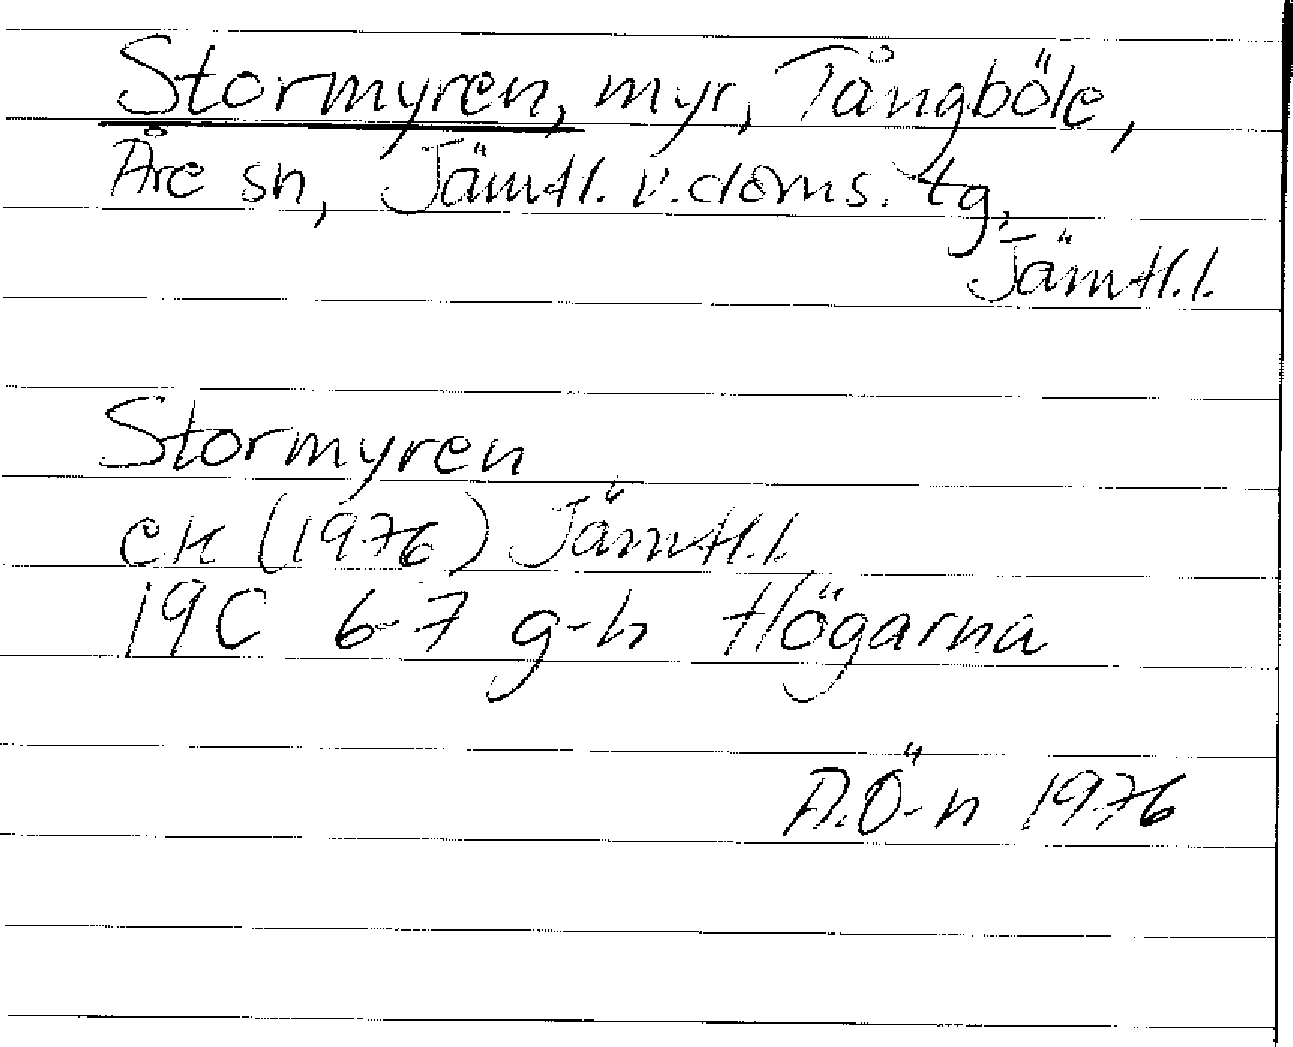 Stormyren, myr, Tångböle,
Åre sn, Jämtl. v. doms. tg,
Jämtl. l.
Stormyren
ek (1976) Jämtl. l.
19C 6-7 g-h Högarna
A.Ö-n 1976